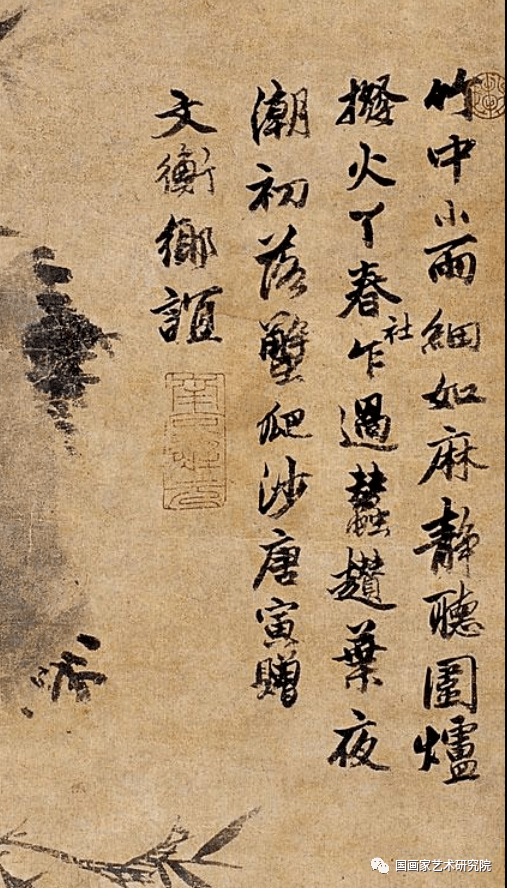 竹中小雨細如麻靜聽圍爐
撥火丫春社乍過蠶趲葉夜
潮初落蟹爬沙唐寅贈
文衡鄉誼
南京解元
国画家艺术研究院